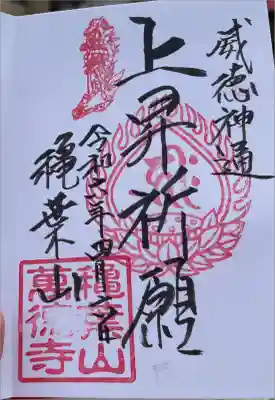 威徳神通
上昇祈願
令和六年四月
穐葉山
穐葉山
萬徳寺